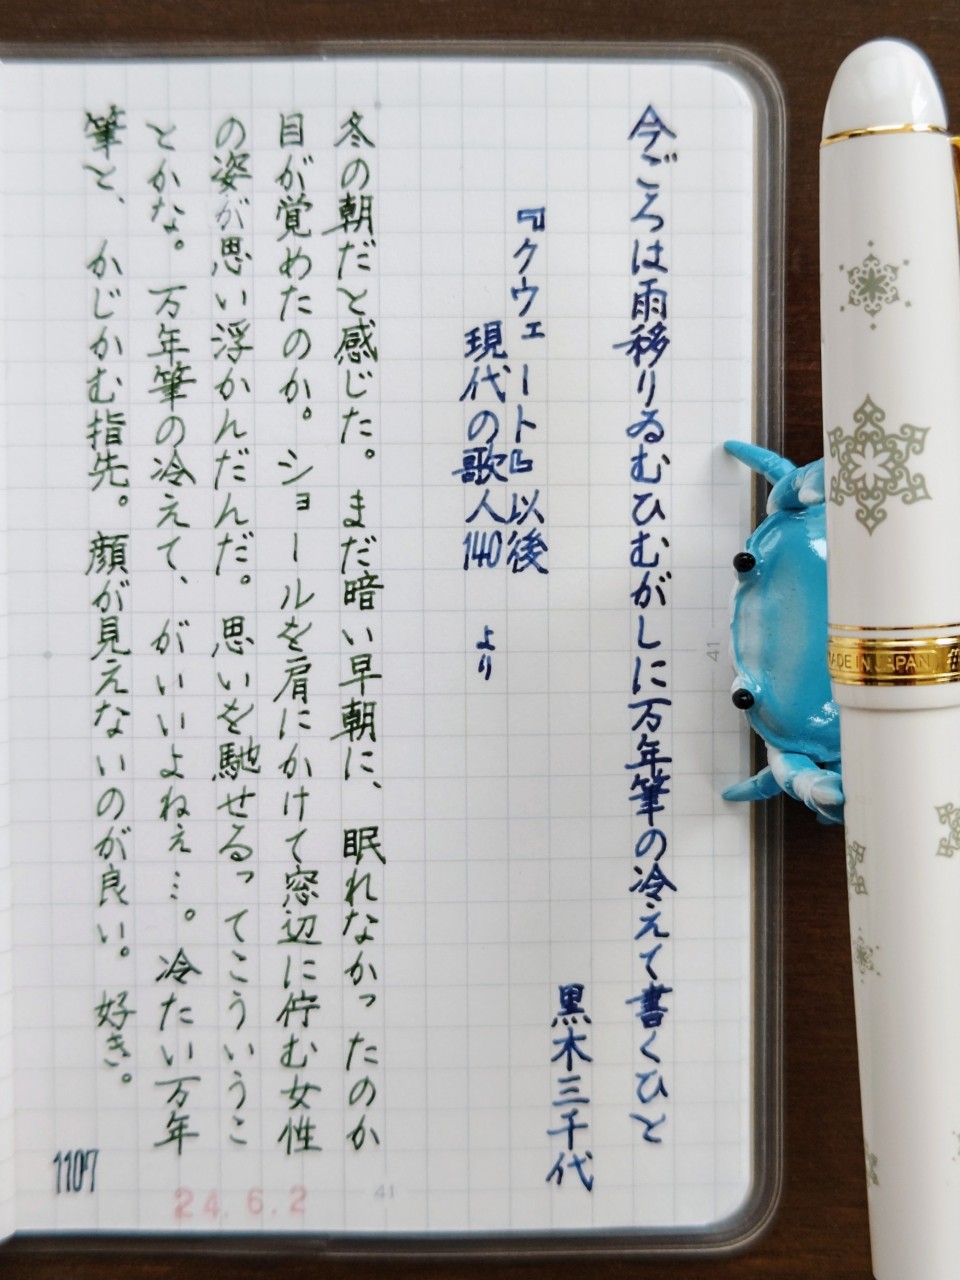 今ごろは雨移りゐむひむがしに万年筆の冷えて書くひと
黒木三千代
『クウェート』以後
現代の歌人140 より
冬の朝だと感じた。まだ暗い早朝に、眠れなかったのか
目が覚めたのか。ショールを肩にかけて窓辺に佇む女性
の姿が思い浮かんだんだ。思いを馳せるってこういうこ
とかな。万年筆の冷えて、がいいよねぇ…。冷たい万年
筆と、かじかむ指先。顔が見えないのが良い。好き。
1107
24.6.2
41
41
MADE IN JAPAN